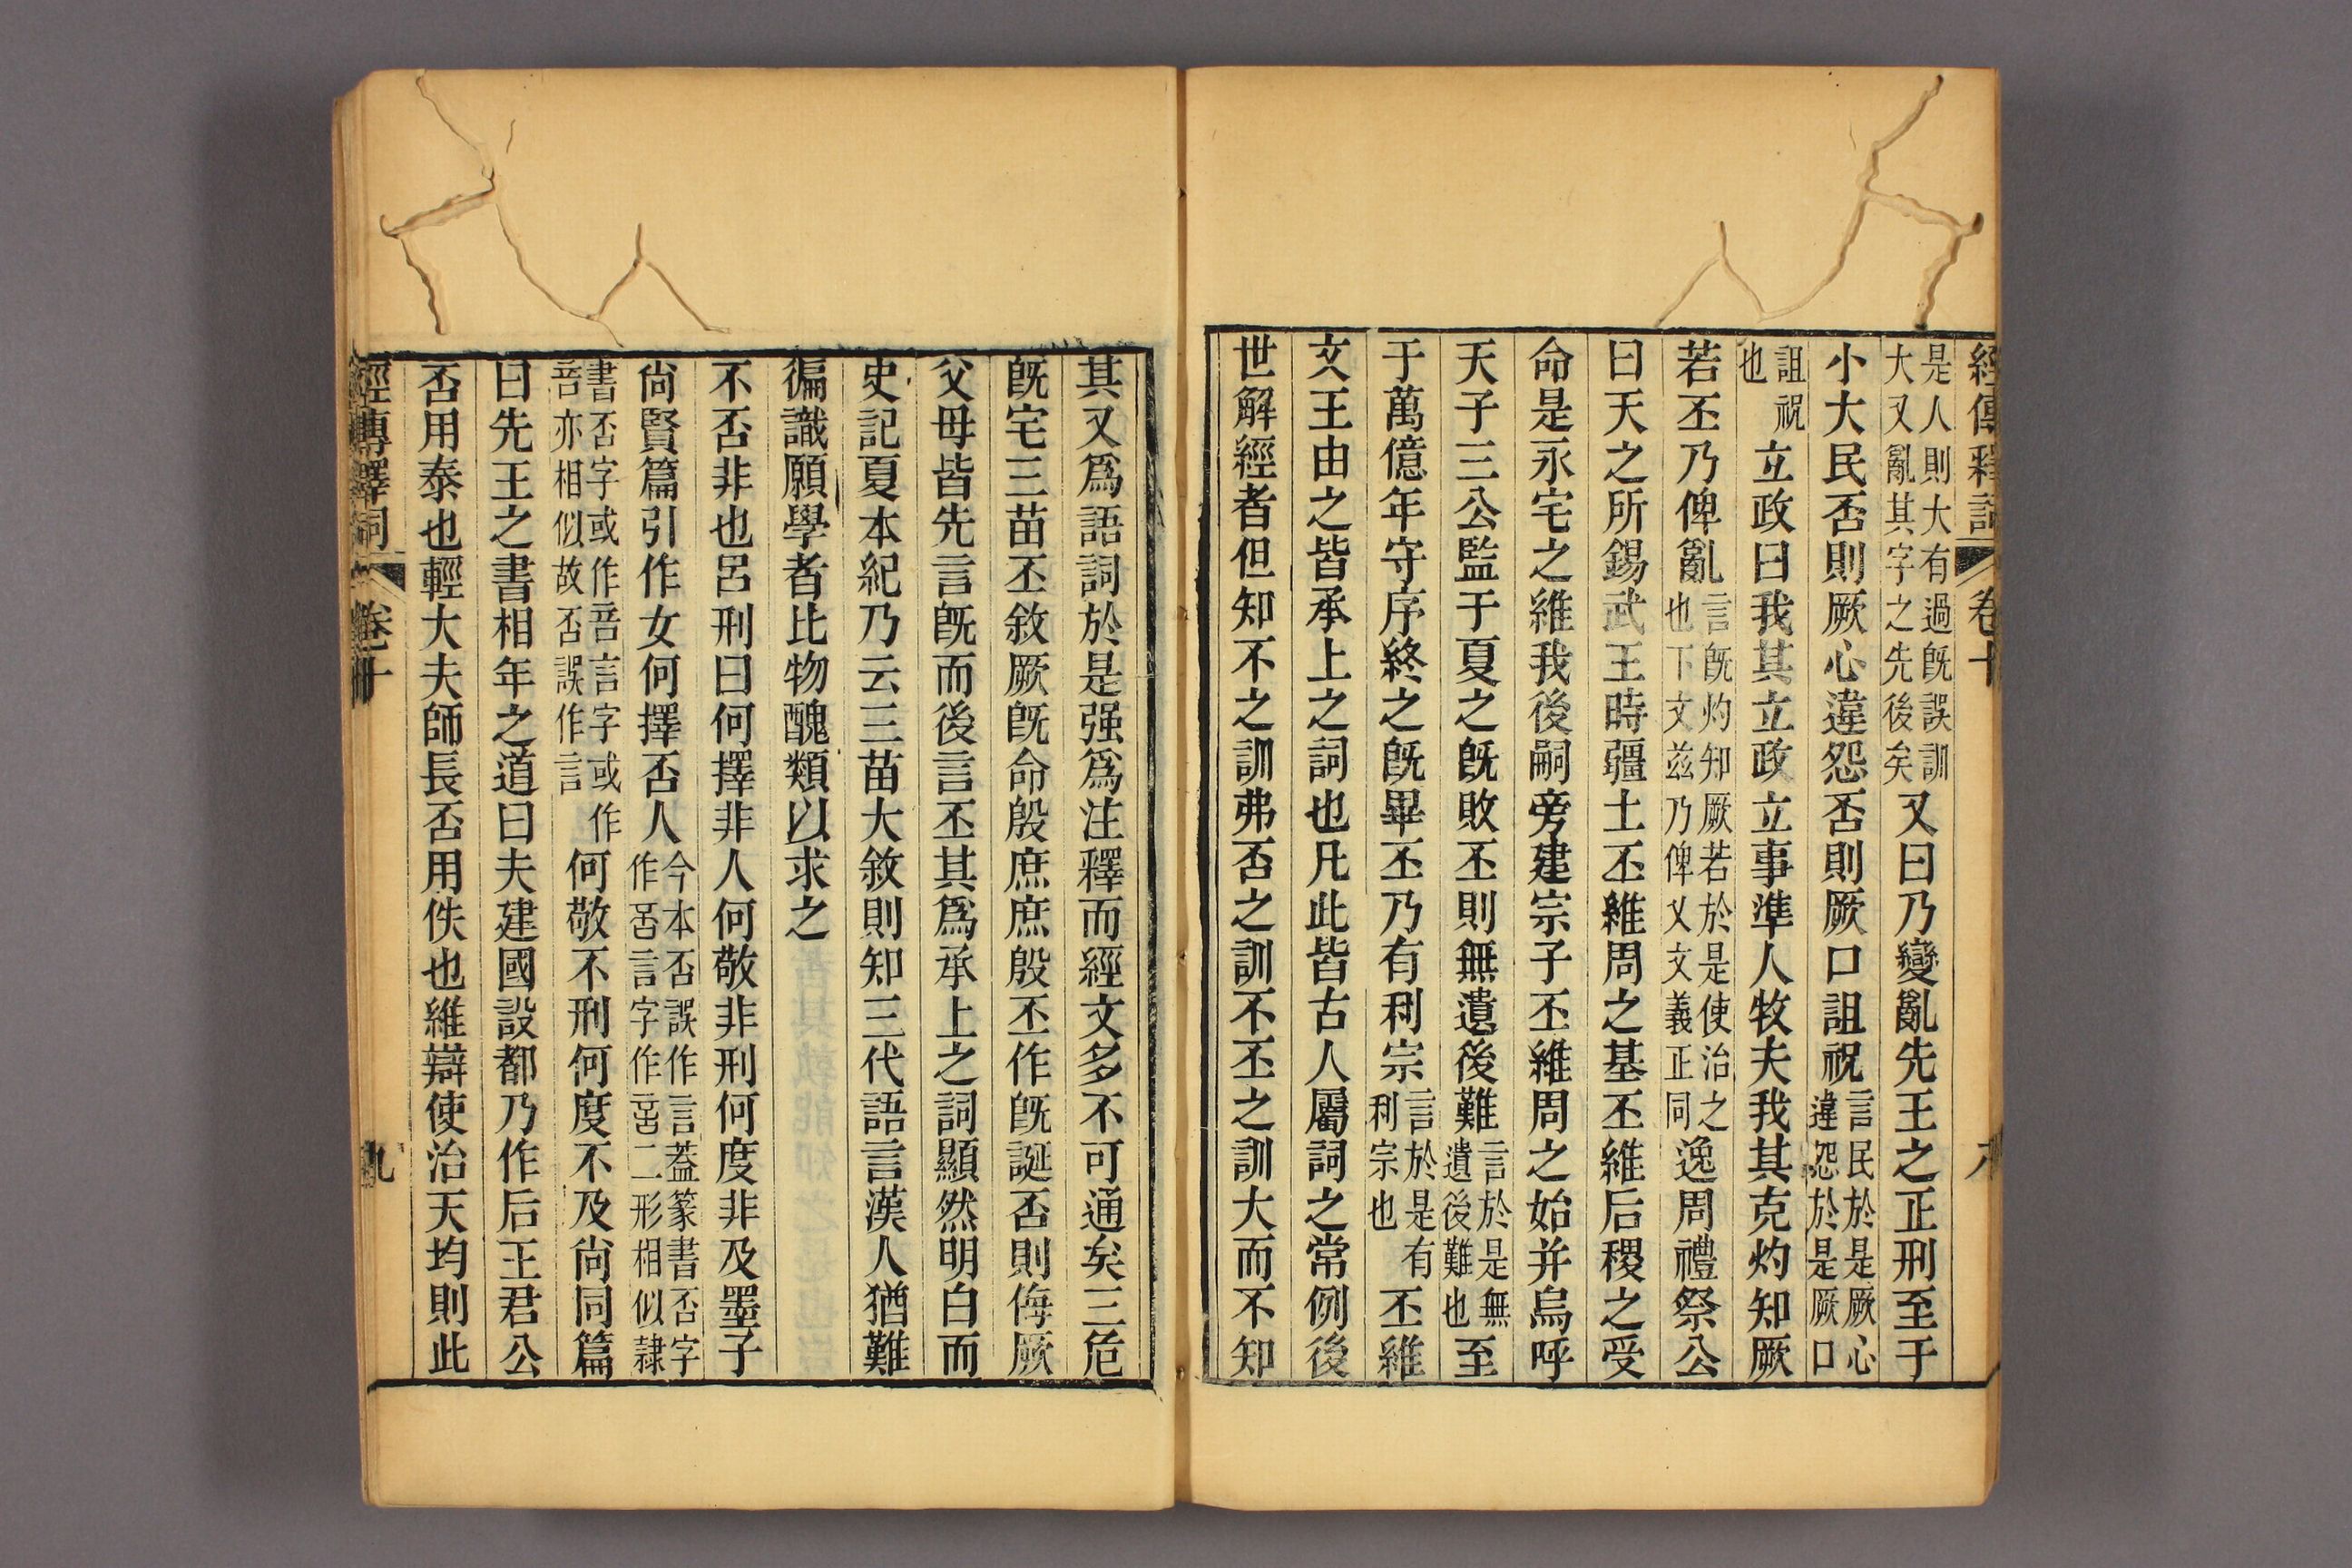 經傳釋詞 卷十
是人則大有過旣誤訓
大又亂其字之先後矣
又曰乃變亂先王之正刑至于
小大民否則厥心違怨否則厥口詛祝
言民於是厥心
違怨於是厥口
詛祝
也
立政曰我其立政立事準人牧夫我其克灼知厥
若丕乃俾亂
言旣灼知厥若於是使治之
也下文兹乃俾乂文義正同
逸周禮祭公
曰天之所錫武王時疆土丕維周之基丕維后稷之受
命是永宅之維我後嗣旁建宗子丕維周之始并烏呼
天子三公監于夏之旣敗丕則無遺後難
言於是無
遺後難也
至
于萬億年守序終之旣畢丕乃有利宗
言於是有
利宗也
丕維
文王由之皆承上之詞也凡此皆古人屬詞之常例後
世解經者但知不之訓弗否之訓不丕之訓大而不知
其又爲語詞於是强爲注釋而經文多不可通矣三危
旣宅三苗丕敘厥旣命殷庶庶殷丕作旣誕否則侮厥
父母皆先言旣而後言丕其爲承上之詞顯然明白而
史記夏本紀乃云三苗大敘則知三代語言漢人猶難
徧識願學者比物醜類以求之
不否非也呂刑曰何擇非人何敬非刑何度非及墨子
尙賢篇引作女何擇否人
今本否誤作言葢篆書否字
作㖣言字作䇾二形相似隷
書否字或作㖣言字或作
㖣亦相似故否誤作言
何敬不刑何度不及尙同篇
曰先王之書相年之道曰夫建國設都乃作后王君公
否用泰也輕大夫師長否用佚也維辯使治天均則此
經傳釋詞 卷十
九